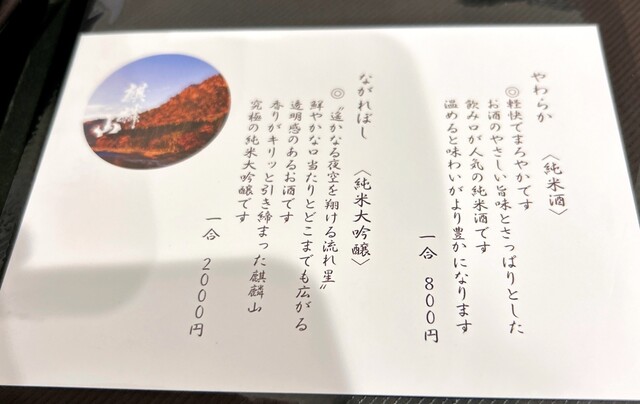 やわらか 〈純米酒〉
◎軽快でまろやかです
お酒のやさしい旨味とさっぱりとした
飲み口が人気の純米酒です
温めると味わいがより豊かになります
一合 800円
ながれぼし 〈純米大吟醸〉
◎〝遥かなる夜空を翔ける流れ星〟
鮮やかな口当たりとどこまでも広がる
透明感のあるお酒です
香りがキリッと引き締まった麒麟山
究極の純米大吟醸です
一合 2000円
麒麟山